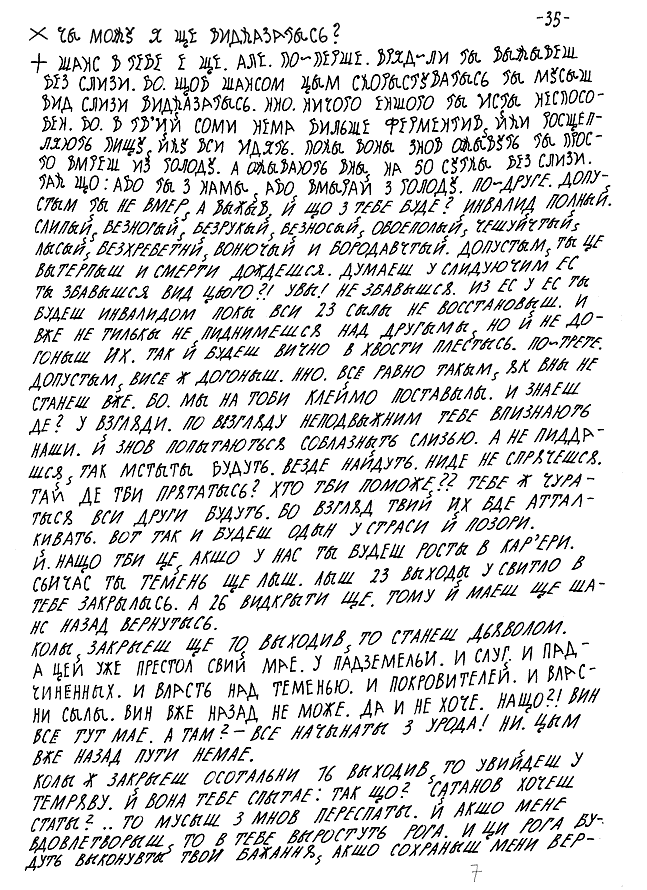 -35-
× ЧЫ МОЖУ Я ЩЕ ВИДКАЗАТЫСЬ?
+ ШАНС В ТЕБЕ Е ЩЕ. АЛЕ. ПО-ПЕРШЕ. ВРЯД-ЛИ ТЫ ВЫЖЫВЕШ
БЕЗ СЛИЗИ. БО. ЩОБ ШАНСОМ ЦЫМ СКОРЫСТУВАТЫСЬ ТЫ МУСЫШ
ВИД СЛИЗИ ВИДКАЗАТЫСЬ. ННО. НИЧОГО ЕНШОГО ТЫ ИСТЫ НЕСПОСО-
БЕН. БО. В ТВ'ИЙ СОМИ НЕМА БИЛЬШЕ ФЕРМЕНТИВ, ЙКИ РОСЩЕП-
ЛЯЮТЬ ПИЩУ, ЙКУ ВСИ ИДЯТЬ. ПОКЫ ВОНЫ ЗНОВ ОЖЫВУТЬ ТЫ ПРОС-
ТО ВМРЕШ ИЗ ГОЛОДУ. А ОЖЫВАЮТЬ ВНЫ, НА 50 СУТКЫ БЕЗ СЛИЗИ.
ТАК ЩО: АБО ТЫ З НАМЫ, АБО ВМЫРАЙ З ГОЛОДУ. ПО-ДРУГЕ. ДОПУ-
СТЫМ ТЫ НЕ ВМЕР, А ВЫЖЫВ, Й ЩО З ТЕБЕ БУДЕ? ИНВАЛИД ПОЛНЫЙ.
СЛИПЫЙ, БЕЗНОГЫЙ, БЕЗРУКЫЙ, БЕЗНОСЫЙ, ОБОЕПОЛЫЙ, ЧЕШУЙЧТЫЙ,
ЛЫСЫЙ, БЕЗХРЕБЕТНИ, ВОНЮЧЫЙ И БОРОДАВЧТЫЙ. ДОПУСТЫМ, ТЫ ЦЕ
ВЫТЕРПЫШ И СМЕРТИ ДОЖДЕШСЯ. ДУМАЕШ У СЛИДУЮЧИМ ЕС
ТЫ ЗБАВЫШСЯ ВИД ЦЬОГО?! УВЫ! НЕ ЗБАВЫШСЯ. ИЗ ЕС У ЕС ТЫ
БУДЕШ ИНВАЛИДОМ ПОКЫ ВСИ 23 СЫЛЫ НЕ ВОССТАНОВЫШ. И
ВЖЕ НЕ ТИЛЬКЫ НЕ ПИДНИМЕШСЯ НАД ДРУГЫМЫ, НО Й НЕ ДО-
ГОНЫШ ИХ. ТАК Й БУДЕШ ВИЧНО В ХВОСТИ ПЛЕСТЫСЬ. ПО-ТРЕТЕ.
ДОПУСТЫМ, ВИСЕ Ж ДОГОНЫШ. ННО. ВСЕ РАВНО ТАКЫМ, ЯК ВНЫ НЕ
СТАНЕШ ВЖЕ. БО. МЫ НА ТОБИ КЛЕЙМО ПОСТАВЫЛЫ. И ЗНАЕШ
ДЕ? У ВЗГЛЯДИ. ПО ВЗГЛЯДУ НЕПОДВЫЖНИМ ТЕБЕ ВПИЗНАЮТЬ
НАШИ. Й ЗНОВ ПОПЫТАЮТЬСЯ СОБЛАЗНЫТЬ СЛИЗЬЮ. А НЕ ПИДДА-
ШСЯ, ТАК МСТЫТЫ БУДУТЬ. ВЕЗДЕ НАЙДУТЬ. НИДЕ НЕ СПРЯЧЕШСЯ.
ТАЙ ДЕ ТБИ ПРЯТАТЫСЬ? ХТО ТБИ ПОМОЖЕ?? ТЕБЕ Ж ЧУРА-
ТЫСЯ ВСИ ДРУГИ БУДУТЬ. БО ВЗГЛЯД ТВИЙ ИХ БДЕ АТТАЛ-
КИВАТЬ. ВОТ ТАК И БУДЕШ ОДЫН У СТРАСИ Й ПОЗОРИ.
Й. НАЩО ТБИ ЦЕ, АКШО У НАС ТЫ БУДЕШ РОСТЫ В КАР'ЕРИ.
СЬИЧАС ТЫ ТЕМЕНЬ ЩЕ ЛЫШ. ЛЫШ 23 ВЫХОДЫ У СВИТЛО В
ТЕБЕ ЗАКРЫЛЫСЬ. А 26 ВИДКРЫТИ ЩЕ. ТОМУ Й МАЕШ ЩЕ ША-
НС НАЗАД ВЕРНУТЫСЬ.
КОЛЫ, ЗАКРЫЕШ ЩЕ 10, ВЫХОДИВ, ТО СТАНЕШ ДЬЯВОЛОМ.
А ЦЕЙ УЖЕ ПРЕСТОЛ СВИЙ МАЕ. У ПАДЗЕМЕЛЬИ. И СЛУГ, И ПАД-
ЧИНЁННЫХ. И ВЛАСТЬ НАД ТЕМЕНЬЮ. И ПОКРОВИТЕЛЕЙ. И ВЛАС-
НИ СЫЛЫ. ВИН ВЖЕ НАЗАД НЕ МОЖЕ. ДА И НЕ ХОЧЕ. НАЩО?! ВИН
ВСЕ ТУТ МАЕ. А ТАМ? – ВСЕ НАЧЫНАТЫ З УРОДА! НИ. ЦЫМ
ВЖЕ НАЗАД ПУТИ НЕМАЕ.
КОЛЫ Ж ЗАКРЫЕШ ОСОТАЛЬНИ 16 ВЫХОДИВ, ТО УВИЙДЕШ У
ТЕМРЯВУ. Й ВОНА ТЕБЕ СПЫТАЕ: ТАК ЩО? САТАНОВ ХОЧЕШ
СТАТЫ?.. ТО МУСЫШ З МНОВ ПЕРЕСПАТЫ. Й АКШО МЕНЕ
ВДОВЛЕТВОРЫШ, ТО В ТЕБЕ ВЫРОСТУТЬ РОГА. И ЦИ РОГА БУ-
ДУТЬ ВЫКОНУВТЫ ТВОИ БАЖАННЯ, АКШО СОХРАНЫШ МЕНИ ВЕР-
7